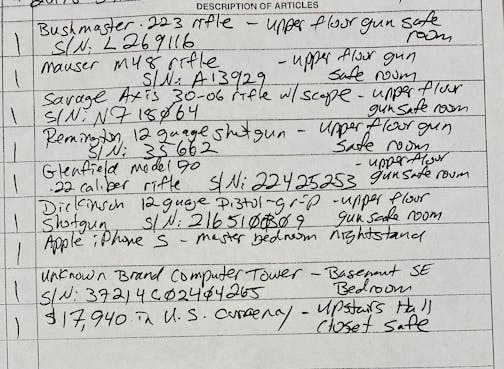 DESCRIPTION OF ARTICLES
1 Bushmaster .223 rifle - upper floor gun safe
S/N: L269116 room
1 Mauser M48 rifle - upper floor gun
S/N: A13929 safe room
1 Savage Axis 30-06 rifle w/scope - upper floor
S/N: N718064 gun safe room
1 Remington 12 guage shotgun - upper floor gun
S/N: 35662 safe room
1 Glenfield model 90 - upper floor
.22 caliber rifle S/N: 22425253 gun safe room
1 Dickinson 12 guage pistol-grip - upper floor
shotgun S/N: gun safe room
1 Apple iPhone S - master bedroom nightstand
1 Unknown Brand Computer Tower - Basement SE
S/N: 37214C02404265 Bedroom
1 $17,940 in U.S. currency - upstairs Hall
closet safe